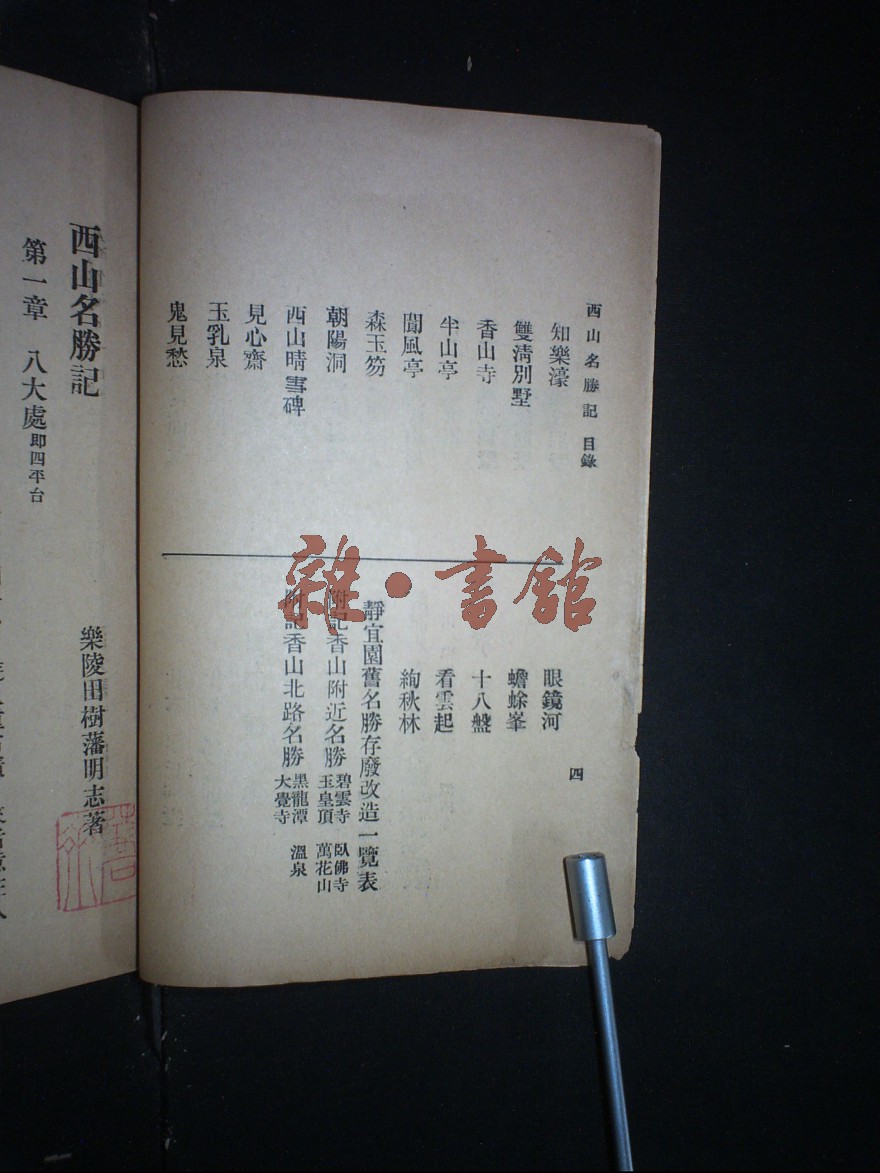 西山名勝記 目錄
四
知樂濠
雙清別墅
香山寺
半山亭
閬風亭
森玉笏
朝陽洞
西山晴雪碑
見心齋
玉乳泉
鬼見愁
眼鏡河
蟾蜍峯
十八盤
看雲起
絢秋林
靜宜園舊名勝存廢改造一覽表
附記香山附近名勝 碧雲寺 臥佛寺
玉皇頂 萬花山
附記香山北路名勝 黑龍潭 溫泉
大覺寺
雜·書館
西山名勝記
樂陵田樹藩明志著
第一章 八大處 即四平台